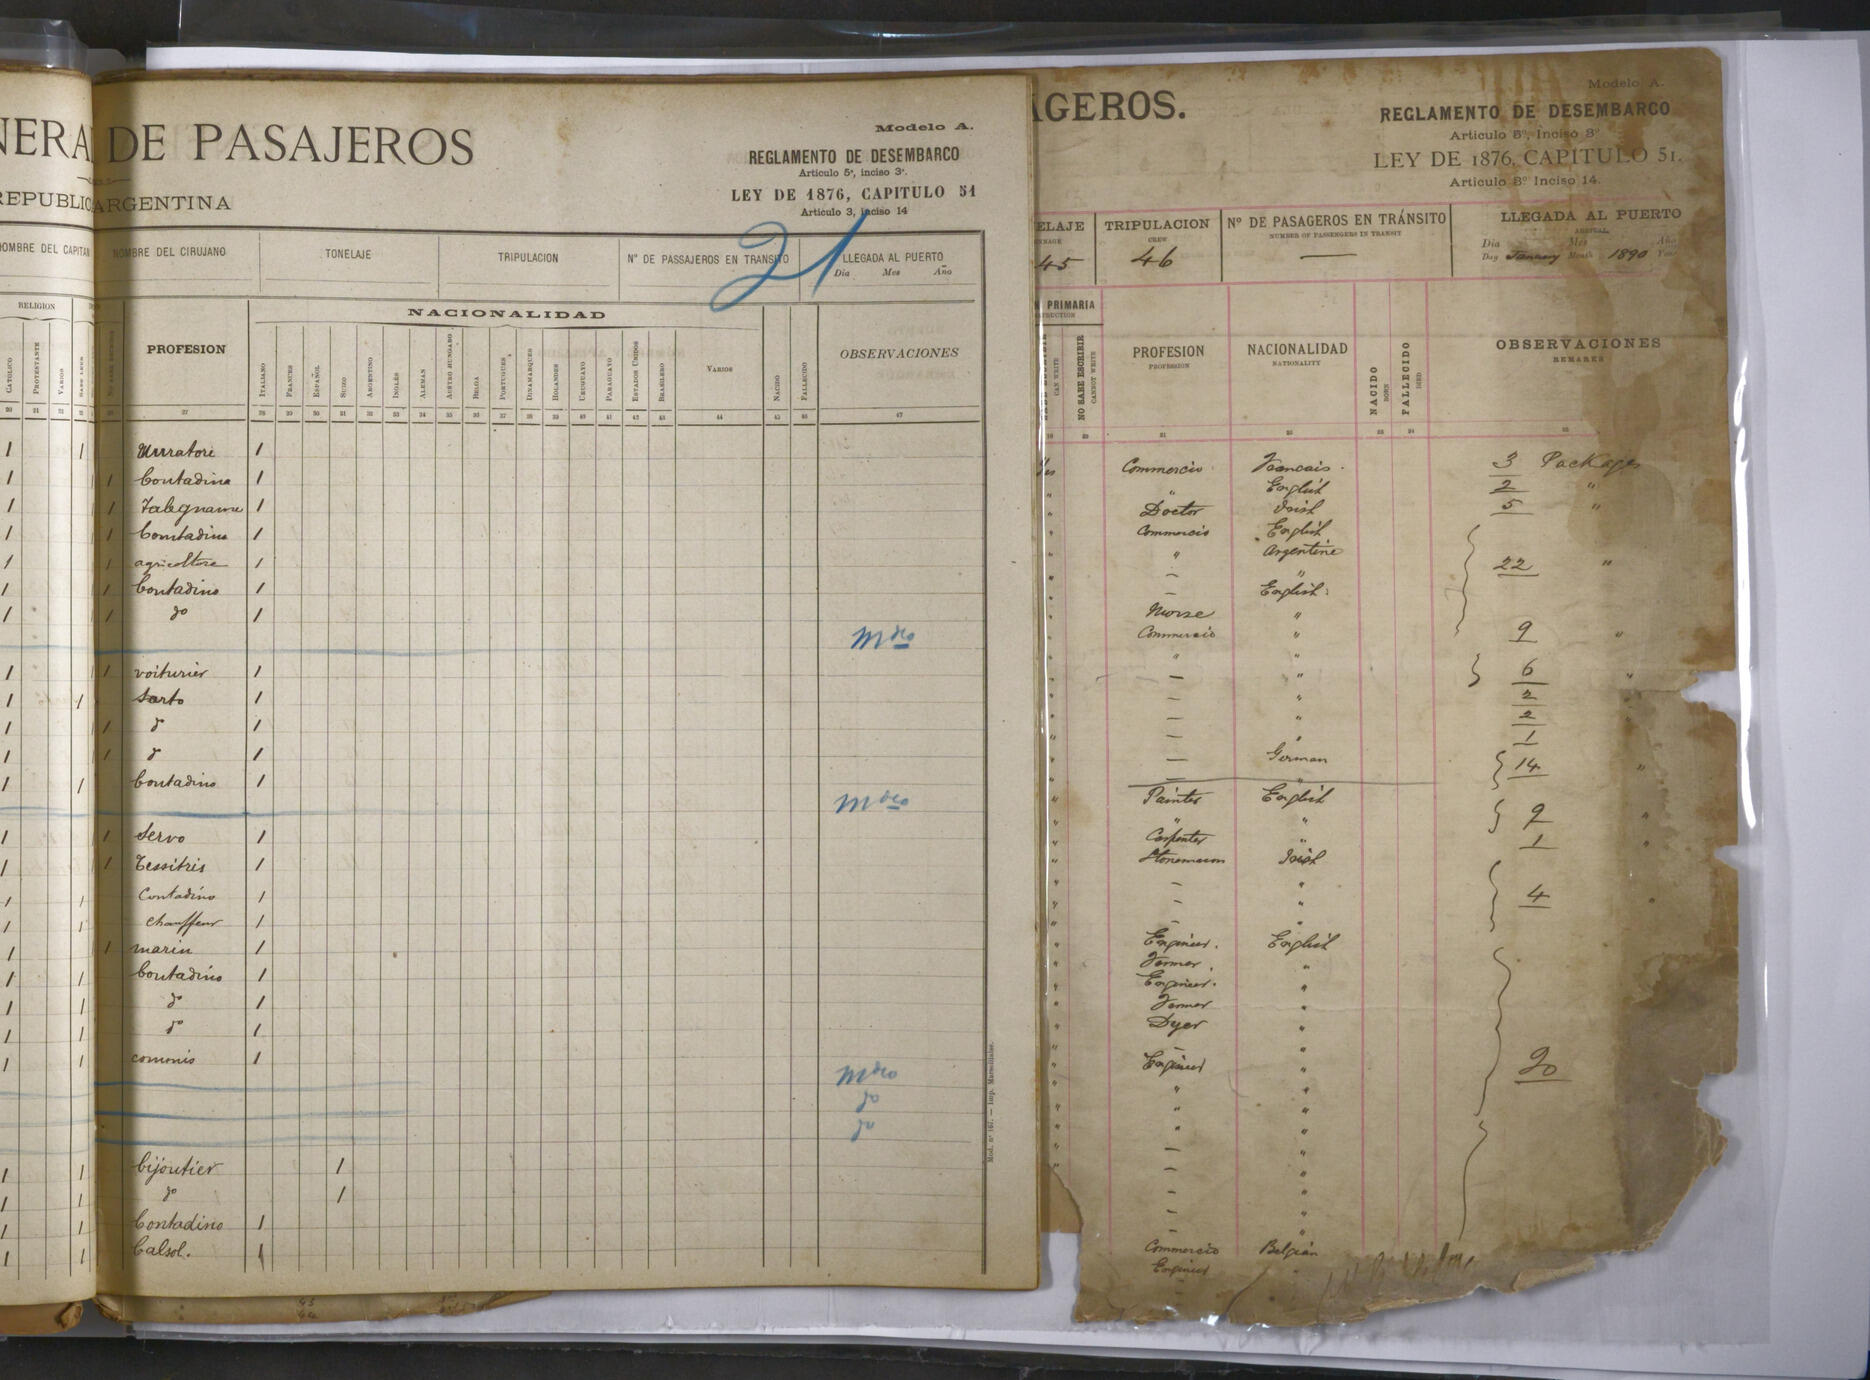 NERA DE PASAJEROS
REPUBLICA ARGENTINA
Modelo A.
REGLAMENTO DE DESEMBARCO
Articulo 5º, inciso 3º.
LEY DE 1876, CAPITULO 51
Articulo 3, inciso 14
21
NOMBRE DEL CAPITAN
NOMBRE DEL CIRUJANO
TONELAJE
TRIPULACION
Nº DE PASSAJEROS EN TRANSITO
LLEGADA AL PUERTO
Dia Mes Año
RELIGION
NACIONALIDAD
CATOLICO
PROTESTANTE
VARIOS
PROFESION
ITALIANO
FRANCES
ESPAÑOL
SUIZO
ARGENTINO
INGLÉS
ALEMAN
AUSTRO HUNGARO
BELGA
PORTUGUES
DINAMARQUES
HOLANDES
URUGUAYO
PARAGUAYO
ESTADOS UNIDOS
BRASILERO
VARIOS
NACIDO
FALLECIDO
OBSERVACIONES
20 21 22 27 28 29 30 31 32 33 34 35 36 37 38 39 40 41 42 43 44 45 46 47
1 1 Muratori 1
1 1 Contadina 1
1 1 Falegname 1
1 1 Contadino 1
1 1 agricoltore 1
1 1 Contadino 1
1 1 dº 1
Mdeo
1 1 voiturier 1
1 1 Sarto 1
1 1 dº 1
1 1 dº 1
1 1 Contadino 1
Mdeo
1 1 Servo 1
1 1 Tessitris 1
1 1 Contadino 1
1 1 Chauffeur 1
1 1 marin 1
1 1 Contadino 1
1 1 dº 1
1 1 dº 1
1 1 commis 1
Mdeo
dº
dº
1 1 bijoutier 1
1 1 dº 1
1 1 Contadino 1
1 1 Calsol. 1
Mod. nº 167. — Imp. Marseillaise.
AGEROS.
Modelo A.
REGLAMENTO DE DESEMBARCO
Articulo 5º, Inciso 3º
LEY DE 1876, CAPITULO 51.
Articulo 3º Inciso 14.
ELAJE
NNAGE
45
TRIPULACION
CREW
46
Nº DE PASAGEROS EN TRÁNSITO
NUMBER OF PASSENGERS IN TRANSIT
—
LLEGADA AL PUERTO
ARRIVAL
Dia Mes Año
Day January Month 1890 Year
N PRIMARIA
STRUCTION
CAN WRITE
NO SABE ESCRIBIR
CANNOT WRITE
PROFESION
PROFESSION
NACIONALIDAD
NATIONALITY
NACIDO
BORN
FALLECIDO
DIED
OBSERVACIONES
REMARKS
19 20 21 22 23 24 25
Yes Commercio Francais. 3 Packages
" " English 2 "
" Doctor Irish 5 "
" Commercio English
" " Argentine
" — " 22 "
" — English
" Nurse "
" Commercio " 9 "
" " "
" — " 6 "
" — " 2 "
" — " 2 "
" — " 1
" — German
" — " 14 "
" Painter English
" " " 9 "
" Carpenter " 1 "
" Stonemason Irish
" — "
" — " 4 "
" — "
" Engineer. English
" Farmer. "
" Engineer. "
" Farmer "
" Dyer "
" — "
" Engineer " 20
" " "
" " "
" " "
" — "
" — "
— "
— "
— "
Commercio Belgian
Engineer